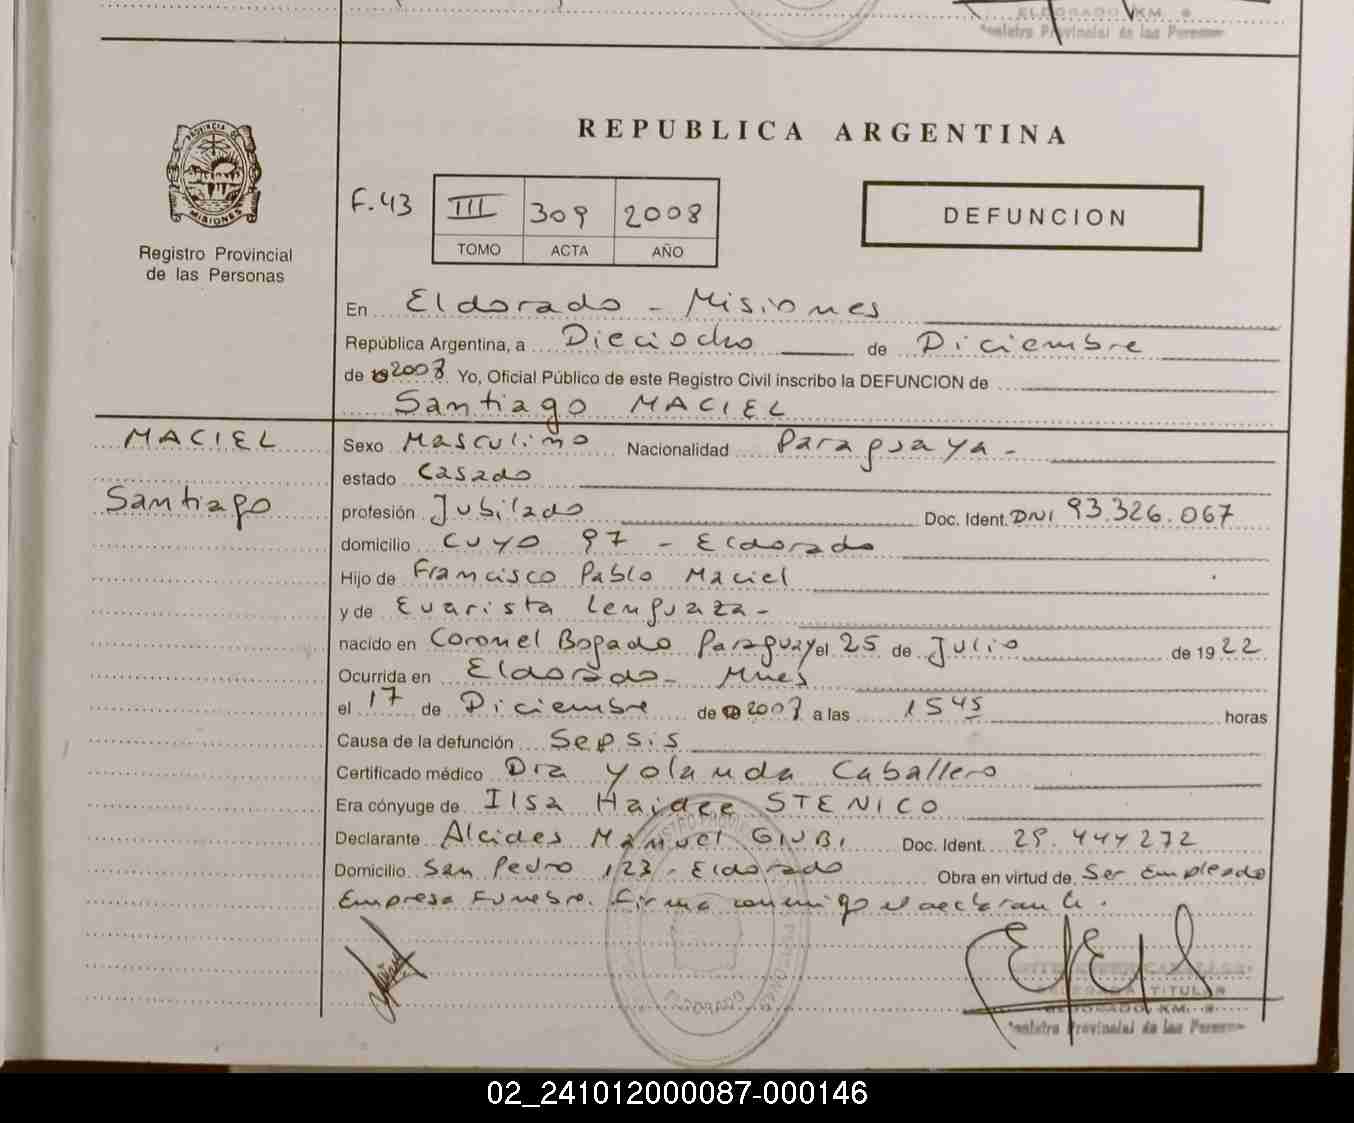 ELDORADO KM. 9
Registro Provincial de las Personas
PROVINCIA DE
MISIONES
Registro Provincial
de las Personas
REPUBLICA ARGENTINA
F.43 III 309 2008
TOMO ACTA AÑO
DEFUNCION
En Eldorado - Misiones
República Argentina, a Dieciocho de Diciembre
de 2008 Yo, Oficial Público de este Registro Civil inscribo la DEFUNCION de
Santiago MACIEL
MACIEL
Santiago
Sexo Masculino Nacionalidad Paraguaya -
estado Casado
profesión Jubilado Doc. Ident. DNI 93.326.067
domicilio CUYO 97 - Eldorado
Hijo de Francisco Pablo Maciel
y de Evarista Lenguaza -
nacido en Coronel Bogado Paraguay el 25 de Julio de 1922
Ocurrida en Eldorado - Mnes
el 17 de Diciembre de 2008 a las 1545 horas
Causa de la defunción Sepsis
Certificado médico Dra Yolanda Caballero
Era cónyuge de Ilsa Haidee STENICO
Declarante Alcides Manuel GIUBI Doc. Ident. 29.444272
Domicilio San Pedro 123 - Eldorado Obra en virtud de Ser Empleado
Empresa Funebre. Firma conmigo el declarante.
ELDORADO
TITULAR
ELDORADO KM. 9
Registro Provincial de las Personas
02_241012000087-000146